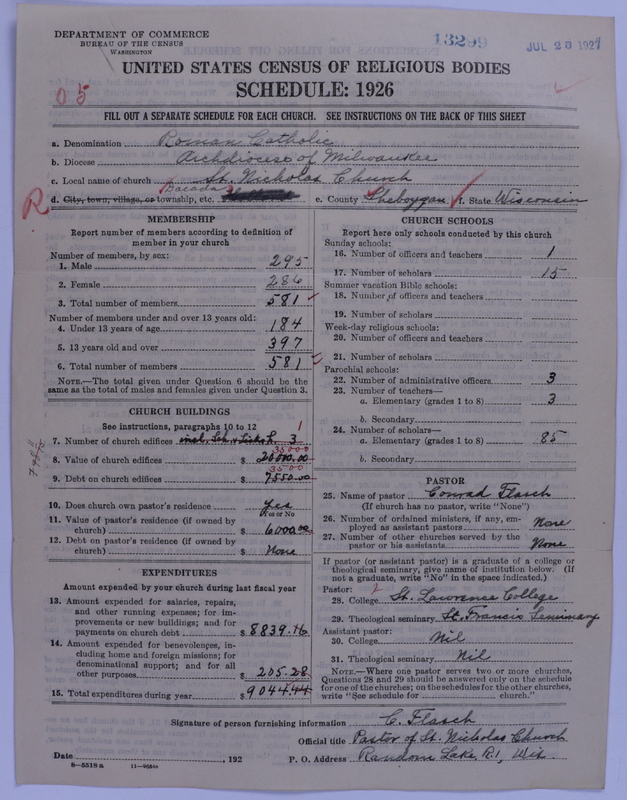 DEPARTMENT OF COMMERCE
BUREAU OF THE CENSUS
WASHINGTON
13299
JUL 23 1927
UNITED STATES CENSUS OF RELIGIOUS BODIES
SCHEDULE: 1926
05
FILL OUT A SEPARATE SCHEDULE FOR EACH CHURCH. SEE INSTRUCTIONS ON THE BACK OF THIS SHEET
a. Denomination Roman Catholic
b. Diocese Archdiocese of Milwaukee
c. Local name of church St. Nicholas Church
R d. City, town, village, or township, etc. e. County Sheboygan f. State Wisconsin
MEMBERSHIP
Report number of members according to definition of member in your church
Number of members, by sex:
1. Male 295
2. Female 286
3. Total number of members 581
Number of members under and over 13 years old:
4. Under 13 years of age 184
5. 13 years old and over 397
6. Total number of members 581
NOTE.—The total given under Question 6 should be the
same as the total of males and females given under Question 3.
CHURCH BUILDINGS
See instructions, paragraphs 10 to 12 1
7. Number of church edifices incl. Sch. 3
35000
8. Value of church edifices $ 20000.00
3500
9. Debt on church edifices $ 7550.00
10. Does church own pastor's residence Yes
Yes or No
11. Value of pastor's residence (if owned by
church) $ 6000.00
12. Debt on pastor's residence (if owned by
church) $ None
EXPENDITURES
Amount expended by your church during last fiscal year
13. Amount expended for salaries, repairs,
and other running expenses; for im-
provements or new buildings; and for
payments on church debt $ 8839.16
14. Amount expended for benevolences, in-
cluding home and foreign missions; for
denominational support; and for all
other purposes $ 205.28
15. Total expenditures during year $ 9044.44
CHURCH SCHOOLS
Report here only schools conducted by this church
Sunday schools:
16. Number of officers and teachers 1
17. Number of scholars 15
Summer vacation Bible schools:
18. Number of officers and teachers
19. Number of scholars
Week-day religious schools:
20. Number of officers and teachers
21. Number of scholars
Parochial schools:
22. Number of administrative officers 3
23. Number of teachers—
a. Elementary (grades 1 to 8) 3
b. Secondary
24. Number of scholars—
a. Elementary (grades 1 to 8) 85
b. Secondary
PASTOR
25. Name of pastor Conrad Flasch
(If church has no pastor, write "None")
26. Number of ordained ministers, if any, em-
ployed as assistant pastors None
27. Number of other churches served by the
pastor or his assistants None
If pastor (or assistant pastor) is a graduate of a college or
theological seminary, give name of institution below. (If
not a graduate, write "No" in the space indicated.)
Pastor:
28. College St. Lawrence College
29. Theological seminary St. Francis Seminary
Assistant pastor:
30. College Nil
31. Theological seminary Nil
NOTE.—Where one pastor serves two or more churches,
Questions 28 and 29 should be answered only on the schedule
for one of the churches; on the schedules for the other churches,
write "See schedule for church."
Signature of person furnishing information C. Flasch
Official title Pastor of St. Nicholas Church
Date , 192 P. O. Address Random Lake, R.1, Wis.
8—5518 a